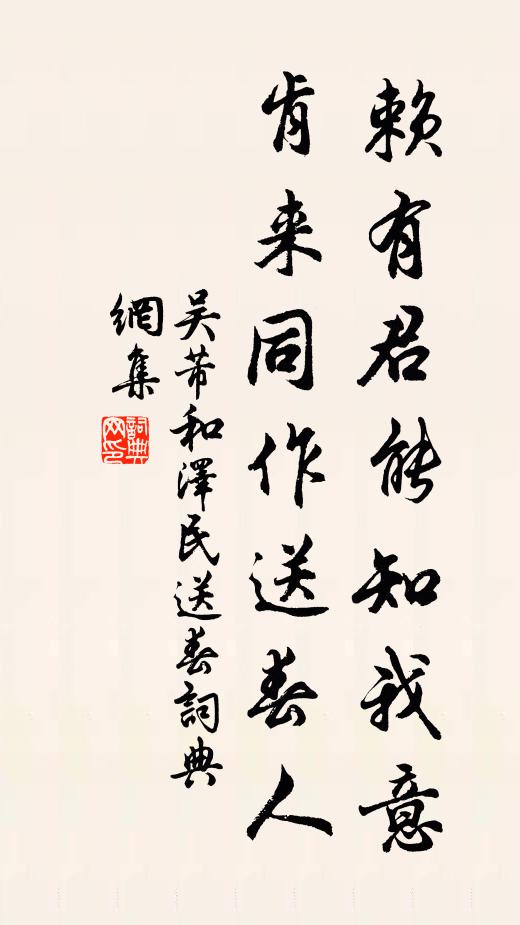 赖有君能知我意
肯来同作送春人
吴芾和澤民送春詞典
網集
詞典网印